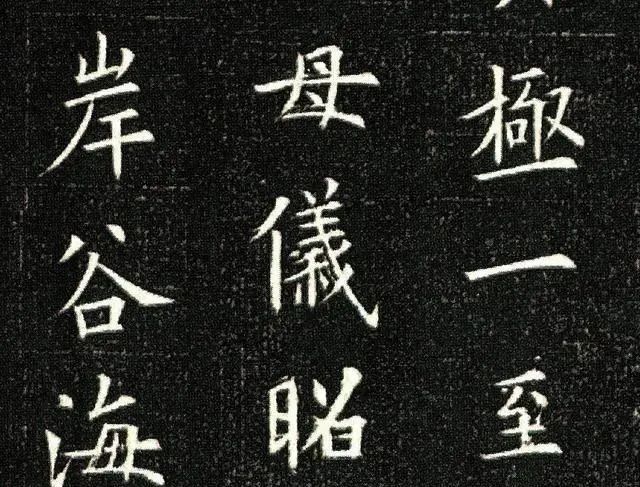 極一至
母儀昭
岸谷海